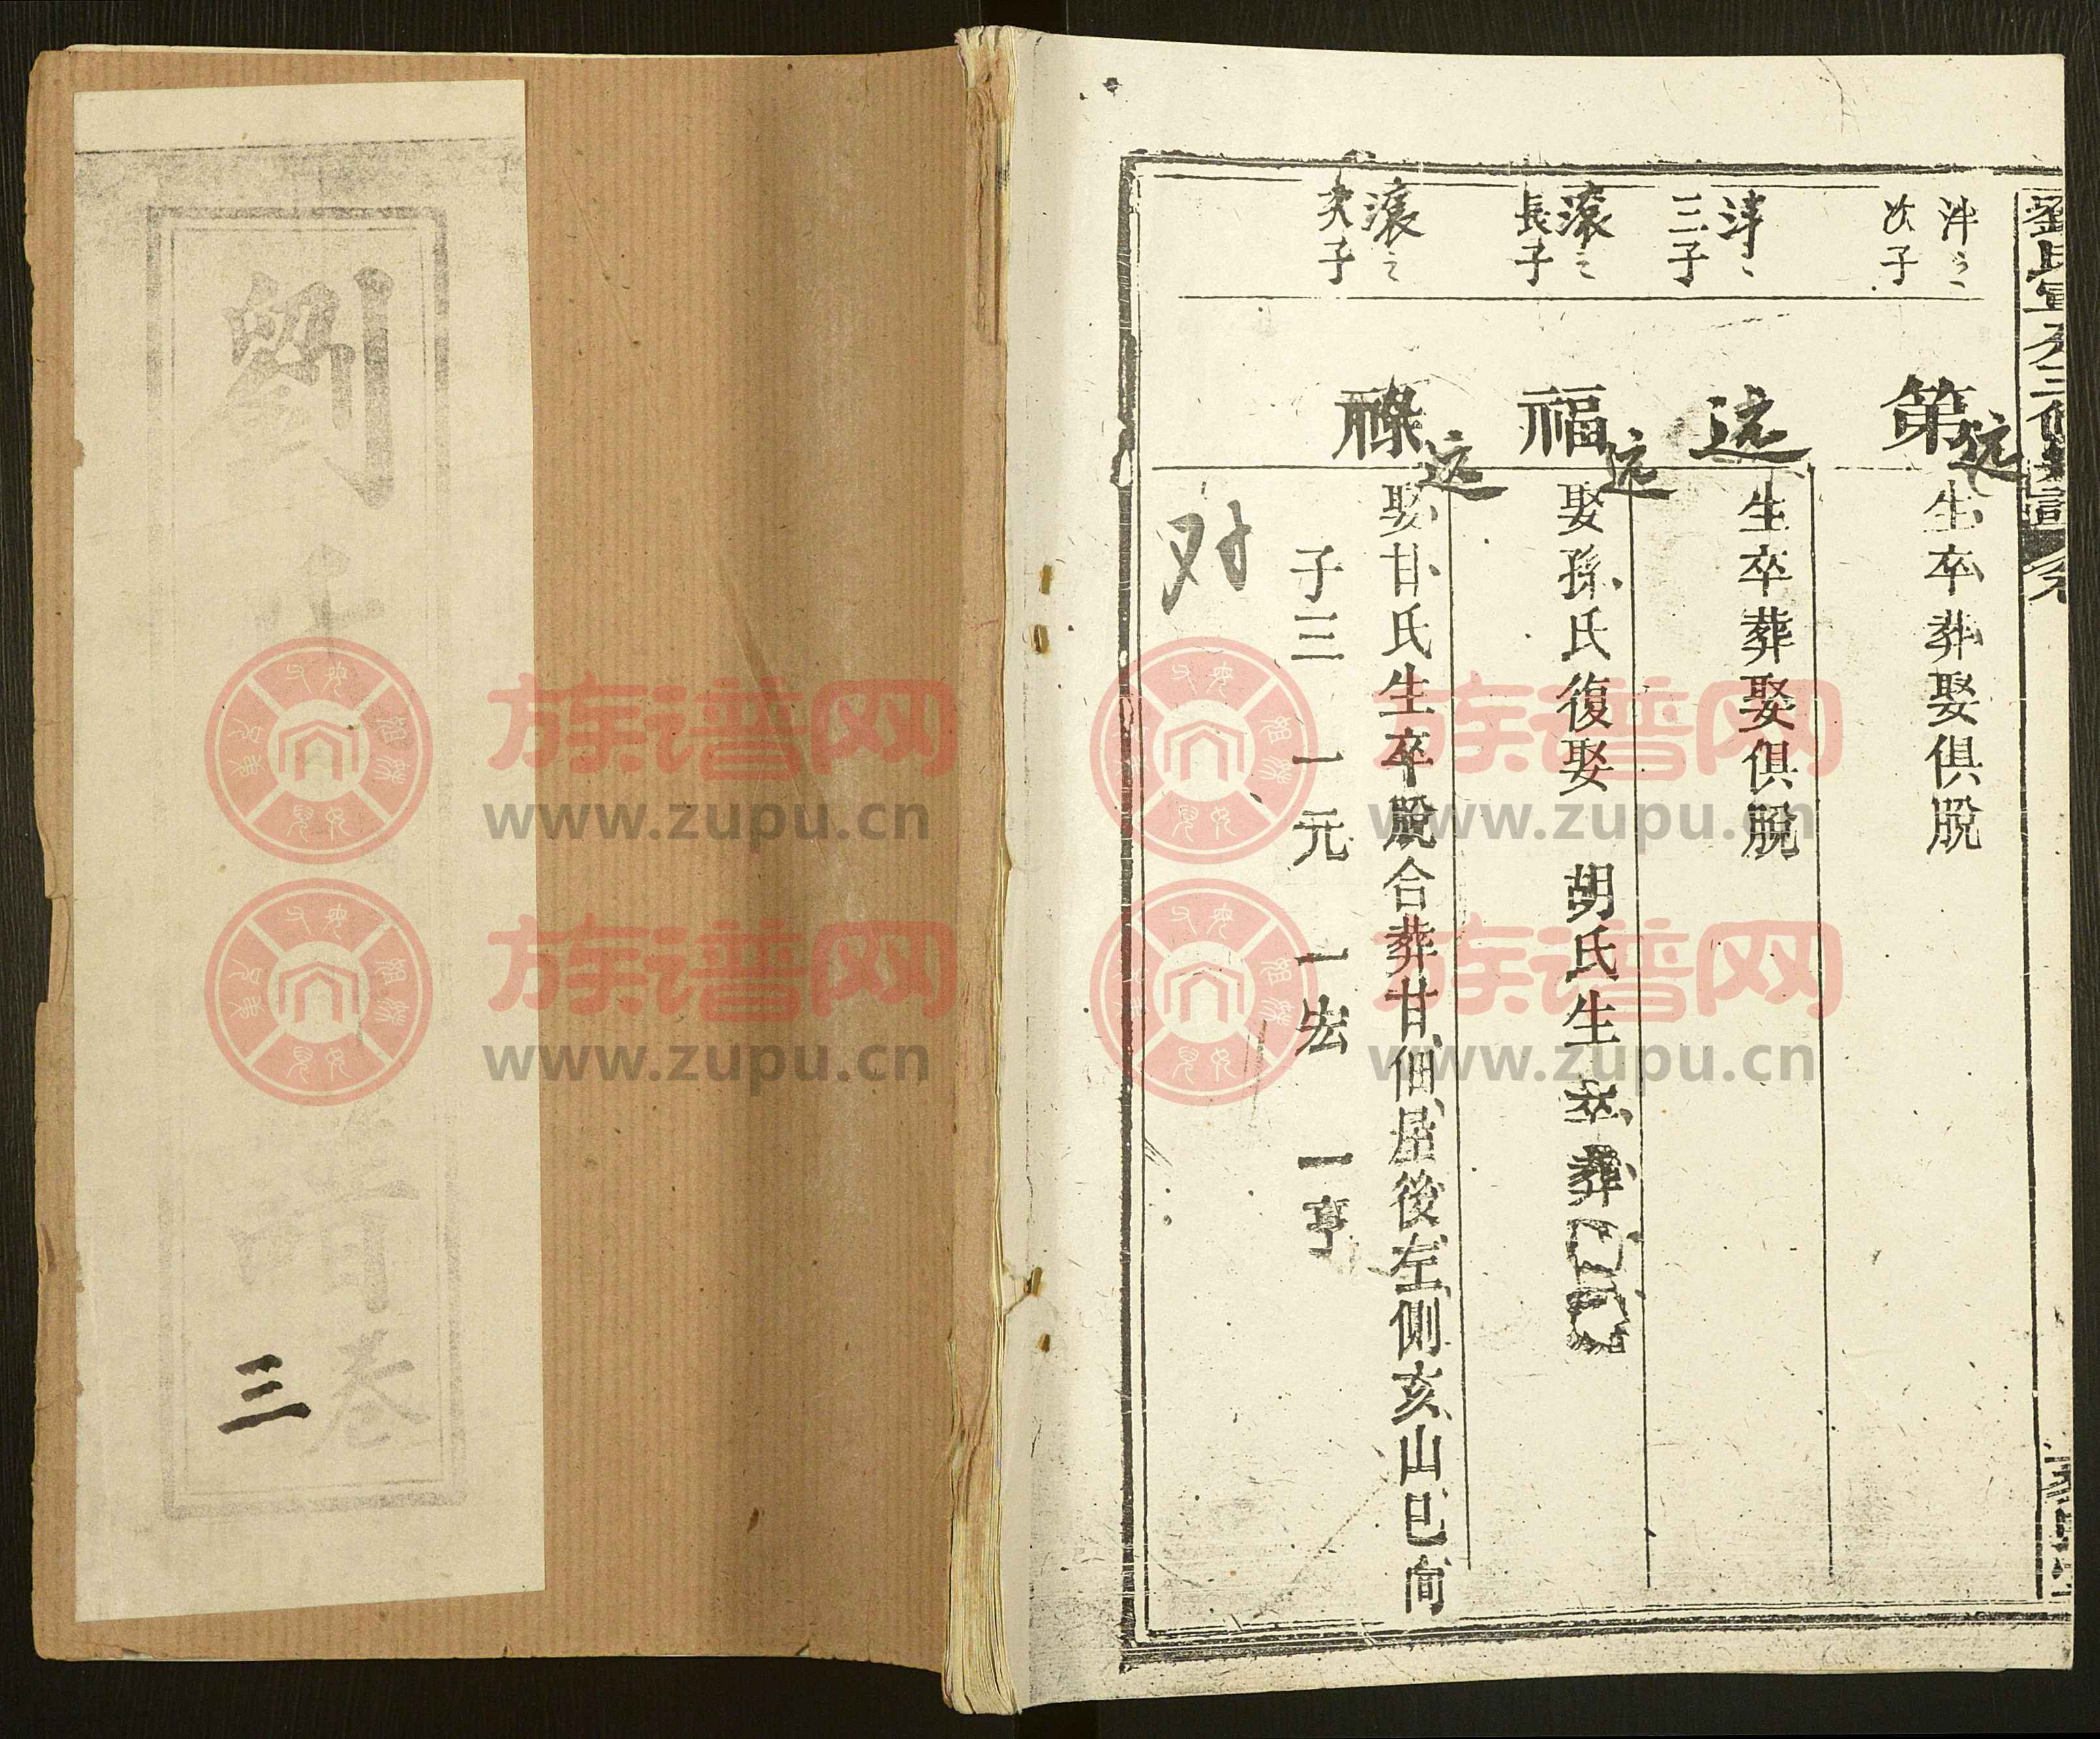 劉氏
譜
卷
三
劉氏宣公三修
泮
次子
第
远
生卒葬娶俱脫
三子
远
生卒葬娶俱脫
滾之
長子
福
远
娶孫氏復娶 胡氏生卒葬
滾之
次子
祿
远
娶甘氏生卒殁合葬甘佃屋後左側亥山巳向
子三 一元 一宏 一亨
对
族谱网
www.zupu.cn
族谱网
www.zupu.cn
族谱网
www.zupu.cn
族谱网
www.zupu.cn